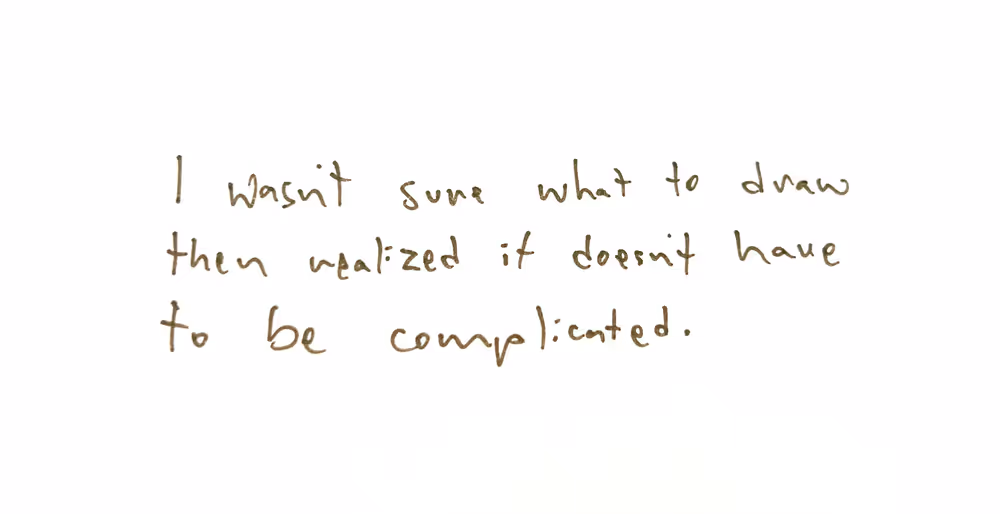 I wasn't sure what to draw
then realized it doesn't have
to be complicated.